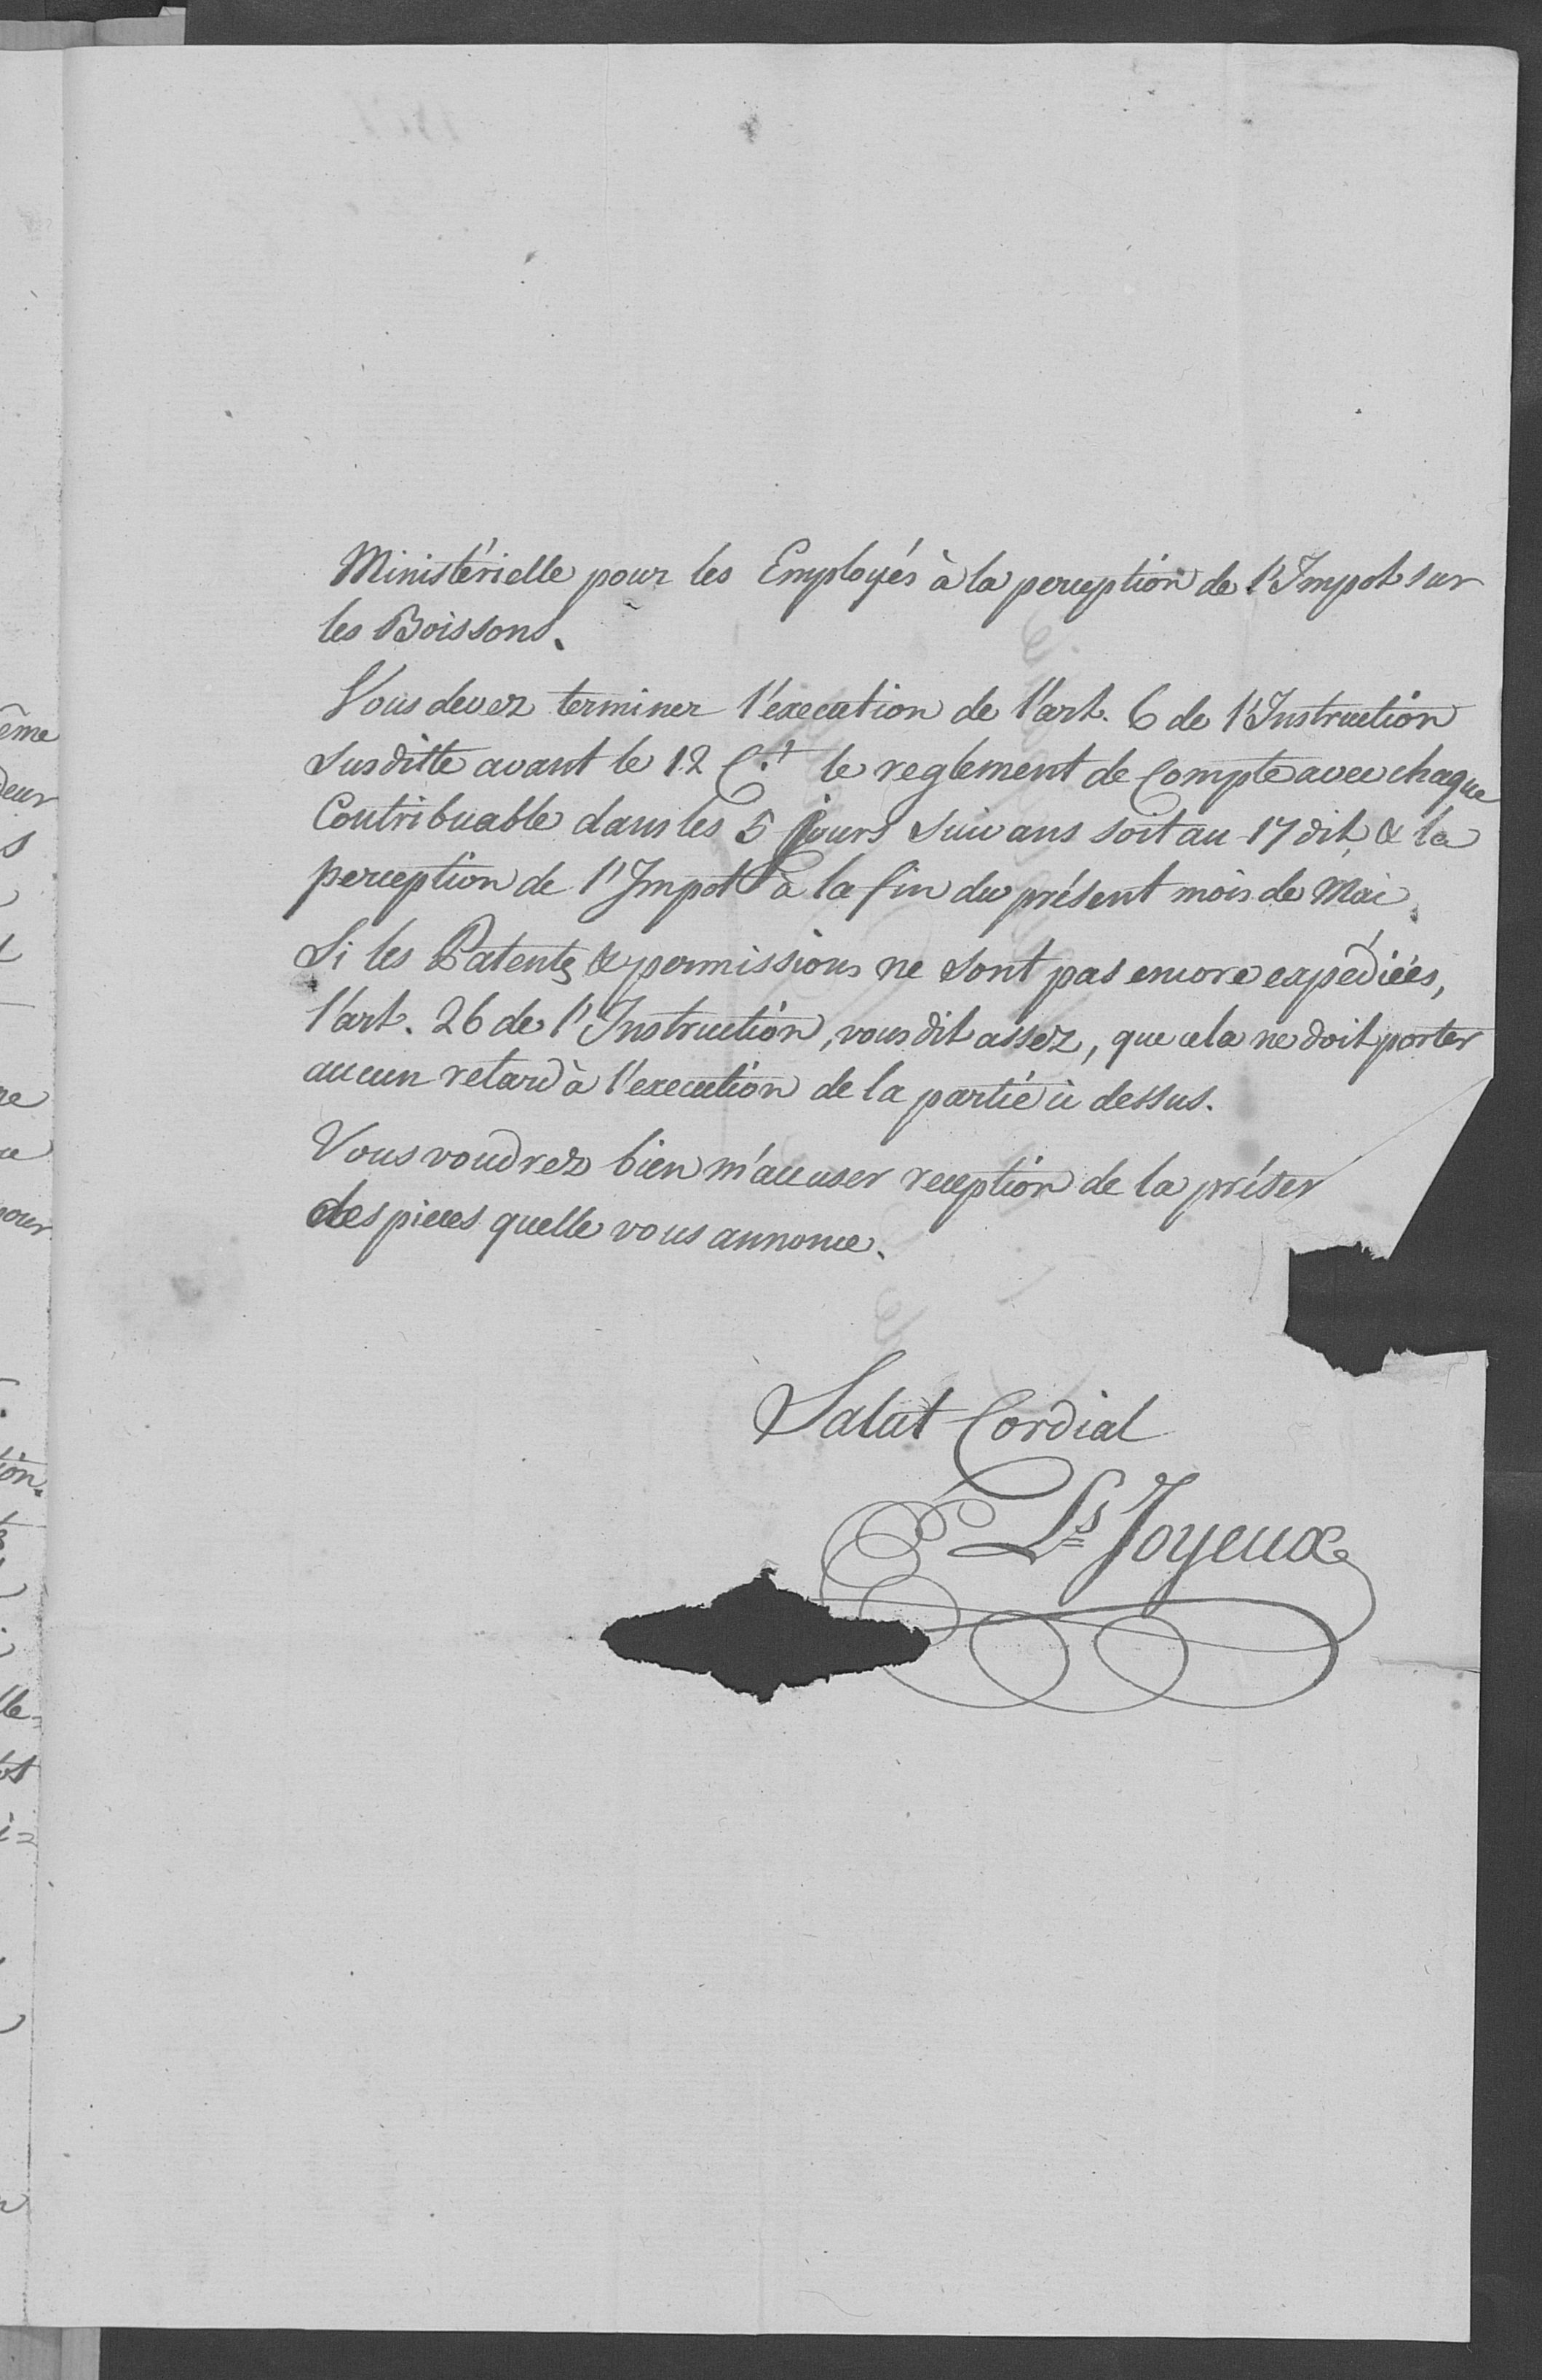 Ministérielle pour les Employés à la perception de l'Impot sur
les Boissons.
Vous devez terminer l'execution de l'art. 6 de l'Instruction
Susditte avant le 12 C.t le reglement de Compte avec chaque
Contribuable dans les 5 jours suivans soit au 17 dit, & la
perception de l'Impot à la fin du présent mois de Mai.
Si les Patentes & permissions ne sont pas encore expédiées,
l'art. 26 de l'Instruction, vous dit assez, que cela ne doit porter
aucun retard à l'execution de la partie ci dessus.
Vous voudrez bien m'accuser reception de la présen
des pieces quelle vous annonce.
Salut Cordial
Ls Joyeux